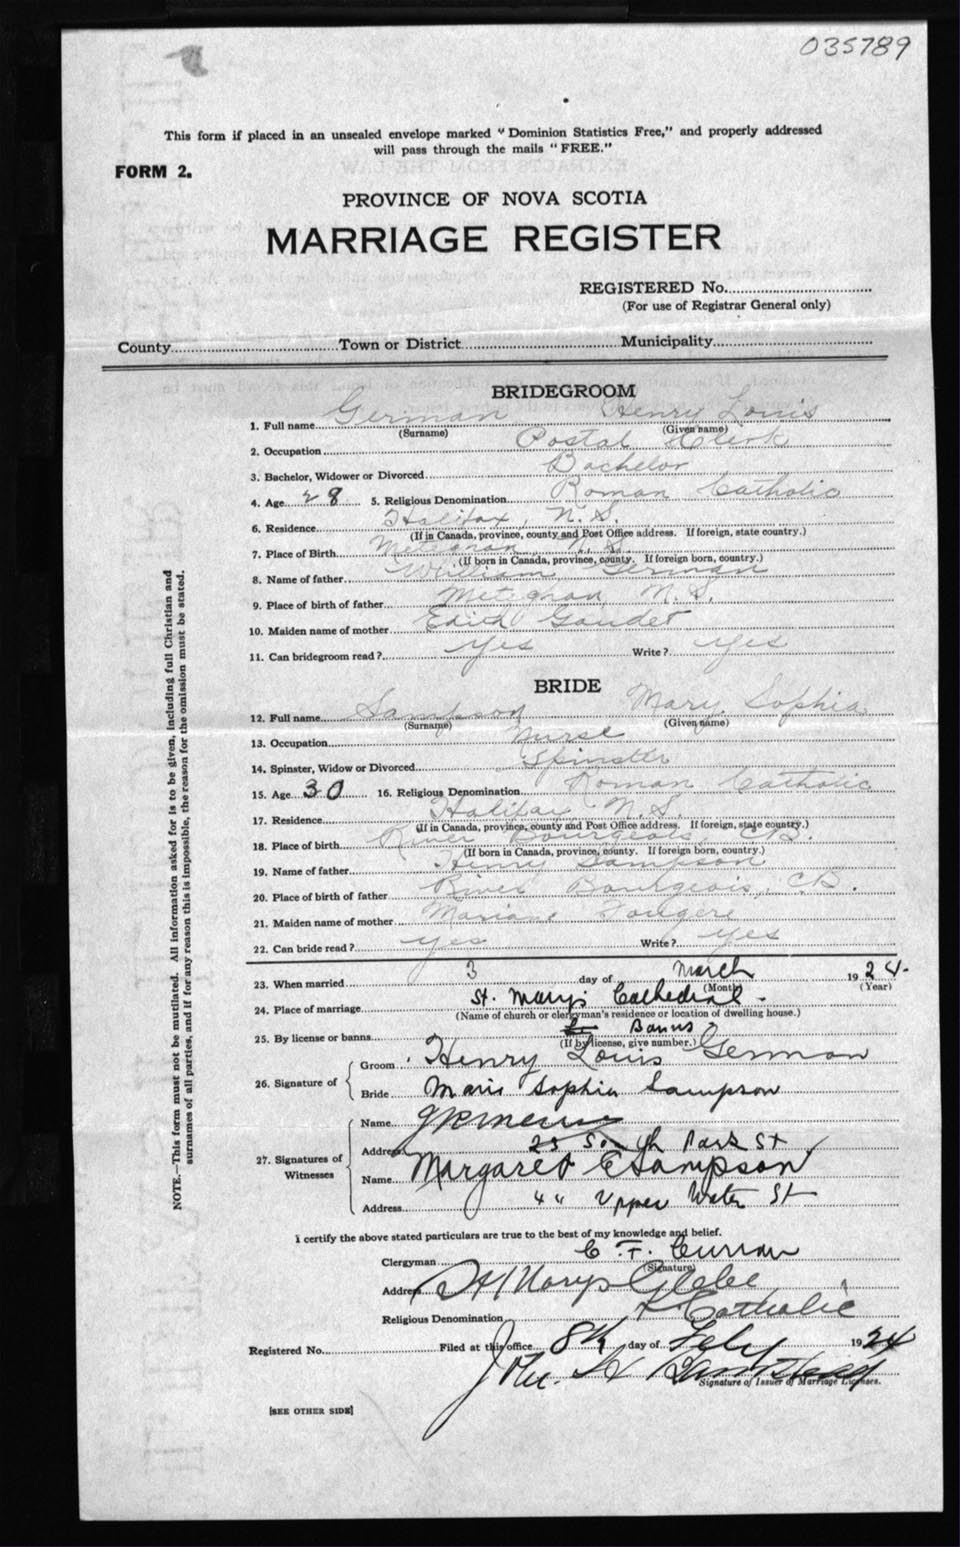 035789
This form if placed in an unsealed envelope marked "Dominion Statistics Free," and properly addressed
will pass through the mails "FREE."
FORM 2.
PROVINCE OF NOVA SCOTIA
MARRIAGE REGISTER
REGISTERED No.
(For use of Registrar General only)
County Town or District Municipality
BRIDEGROOM
1. Full name German Henry Louis
(Surname) (Given name)
2. Occupation Postal Clerk
3. Bachelor, Widower or Divorced Bachelor
4. Age 28 5. Religious Denomination Roman Catholic
6. Residence Halifax, N.S.
(If in Canada, province, county and Post Office address. If foreign, state country.)
7. Place of Birth Meteghan N.S.
(If born in Canada, province, county. If foreign born, country.)
8. Name of father William German
9. Place of birth of father Meteghan, N.S.
10. Maiden name of mother Edith Gaudet
11. Can bridegroom read? yes Write? yes
BRIDE
12. Full name Sampson Mary Sophia
(Surname) (Given name)
13. Occupation Nurse
14. Spinster, Widow or Divorced Spinster
15. Age 30 16. Religious Denomination Roman Catholic
17. Residence Halifax N.S.
(If in Canada, province, county and Post Office address. If foreign, state country.)
18. Place of birth River Bourgeois, C.B.
(If born in Canada, province, county. If foreign born, country.)
19. Name of father Henry Sampson
20. Place of birth of father River Bourgeois, C.B.
21. Maiden name of mother Fougere
22. Can bride read? yes Write? yes
23. When married 3 day of March 1924.
(Month) (Year)
24. Place of marriage St. Mary's Cathedral
(Name of church or clergyman's residence or location of dwelling house.)
25. By license or banns Banns
(If by license, give number.)
26. Signature of
Groom Henry Louis German
Bride Marie Sophia Sampson
27. Signatures of Witnesses
Name
Address 23 South Park St
Name Margaret E Sampson
Address 44 Upper Water St
I certify the above stated particulars are true to the best of my knowledge and belief.
Clergyman C. F. Curran
(Signature)
Address St Marys Glebe
Religious Denomination R Catholic
Registered No. Filed at this office 8th day of 1924
Signature of Issuer of Marriage Licenses.
[SEE OTHER SIDE]
NOTE.—This form must not be mutilated. All information asked for is to be given, including full Christian and
surnames of all parties, and if for any reason this is impossible, the reason for the omission must be stated.